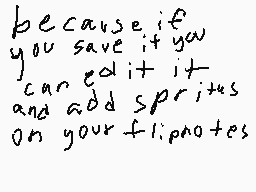 because if
you save it you
can edit it
and add sprites
on your flipnotes